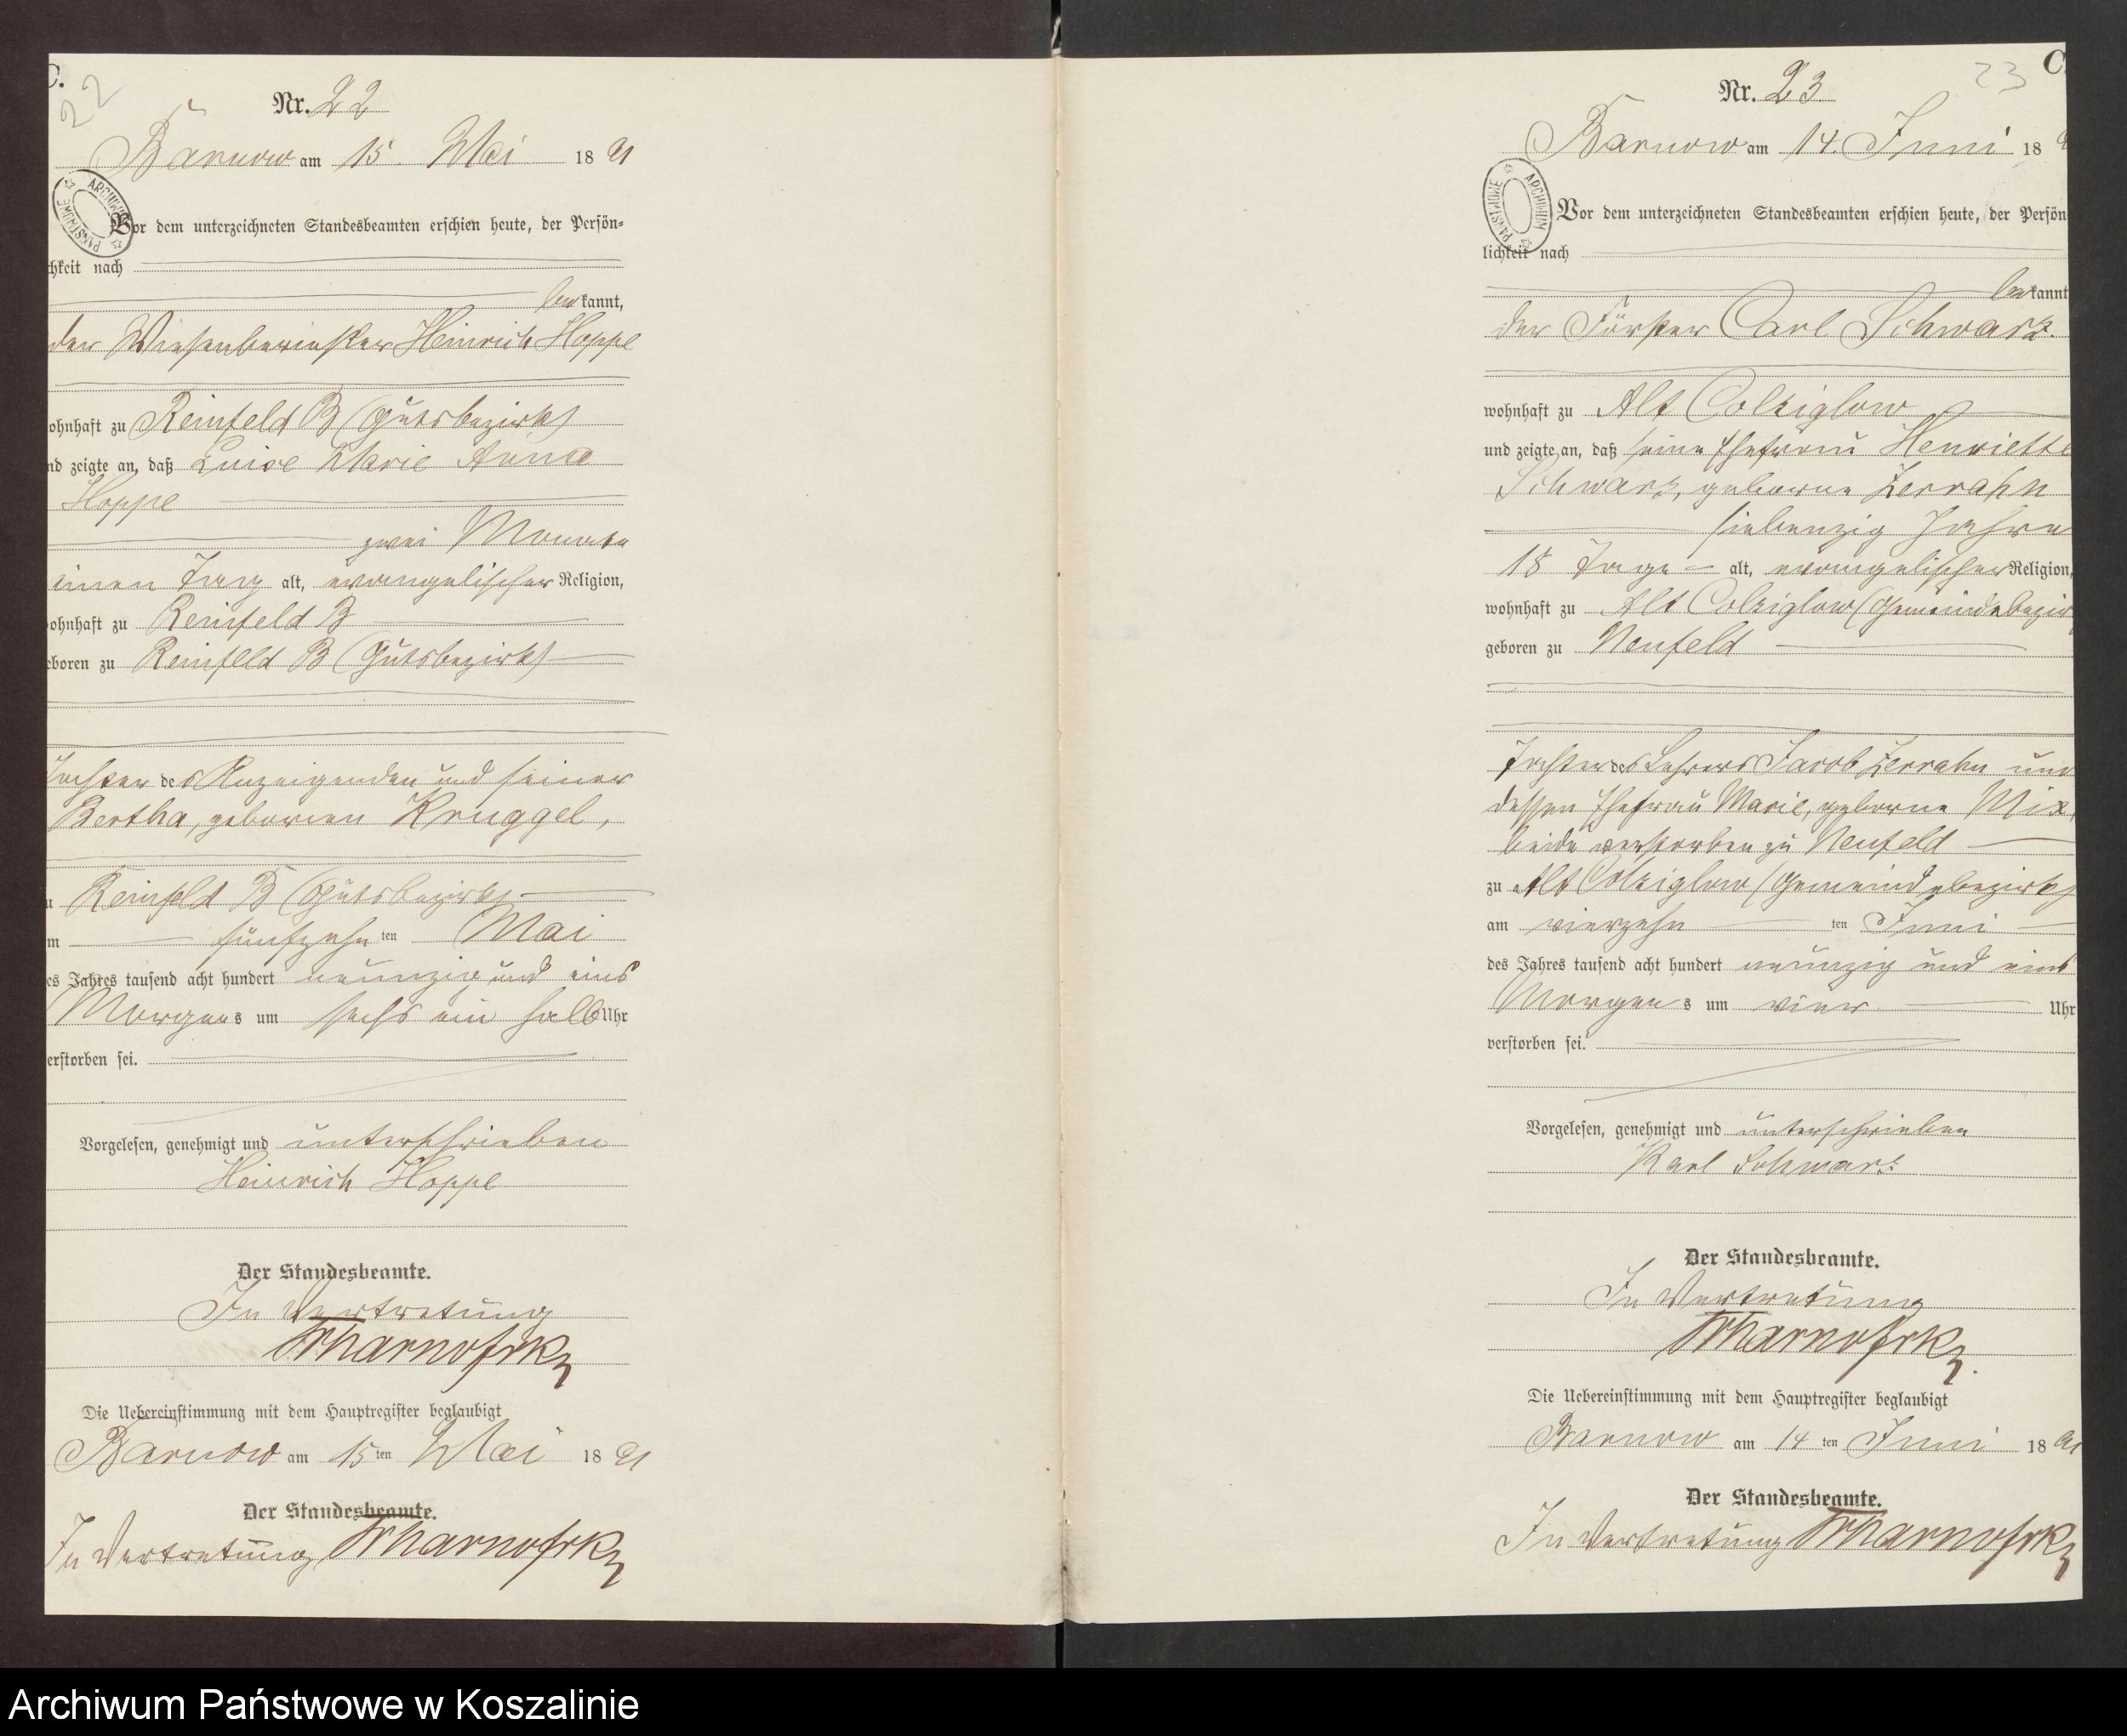 C.
22
Nr. 22
Barnow am 15. Mai 18 91
ARCHIWUM PAŃSTWOWE
Vor dem unterzeichneten Standesbeamten erschien heute, der Persön-
chkeit nach
be kannt,
der Heinrich Hoppe
ohnhaft zu Reinfeld B (Gutsbezirk)
nd zeigte an, daß Luise Marie Anna
Hoppe
zwei Monate
einen Tag alt, evangelischer Religion,
ohnhaft zu Reinfeld B
eboren zu Reinfeld B (Gutsbezirk)
Tochter des Anzeigenden und seiner
Bertha, geborenen Kruggel,
u Reinfeld B (Gutsbezirk)
m fünfzehn ten Mai
es Jahres tausend acht hundert neunzig und eins
Morgens um sechs ein halb Uhr
erstorben sei.
Vorgelesen, genehmigt und unterschrieben
Heinrich Hoppe
Der Standesbeamte.
In Vertretung
Die Uebereinstimmung mit dem Hauptregister beglaubigt
Barnow am 15 ten Mai 18 91
Der Standesbeamte.
In Vertretung
C.
23
Nr. 23
Barnow am 14. Juni 18 9
ARCHIWUM PAŃSTWOWE
Vor dem unterzeichneten Standesbeamten erschien heute, der Persön
lichkeit nach
be kannt
der Förster Carl Schwarz.
wohnhaft zu Alt Colziglow
und zeigte an, daß seine Ehefrau Henriette
Schwarz, geborne Zerrahn
siebenzig Jahre
18 Tage alt, evangelischer Religion,
wohnhaft zu Alt Colziglow (Gemeindebezir
geboren zu Neufeld
Tochter des Lehrers Jacob Zerrahn und
dessen Ehefrau Marie, geborne Mix,
beide verstorben zu Neufeld
zu Alt Colziglow (Gemeindebezirk)
am vierzehn ten Juni
des Jahres tausend acht hundert neunzig und eins
Morgens um vier Uhr
verstorben sei.
Vorgelesen, genehmigt und unterschrieben
Karl Schwarz
Der Standesbeamte.
In Vertretung
Die Uebereinstimmung mit dem Hauptregister beglaubigt
Barnow am 14 ten Juni 18 91
Der Standesbeamte.
In Vertretung
Archiwum Państwowe w Koszalinie